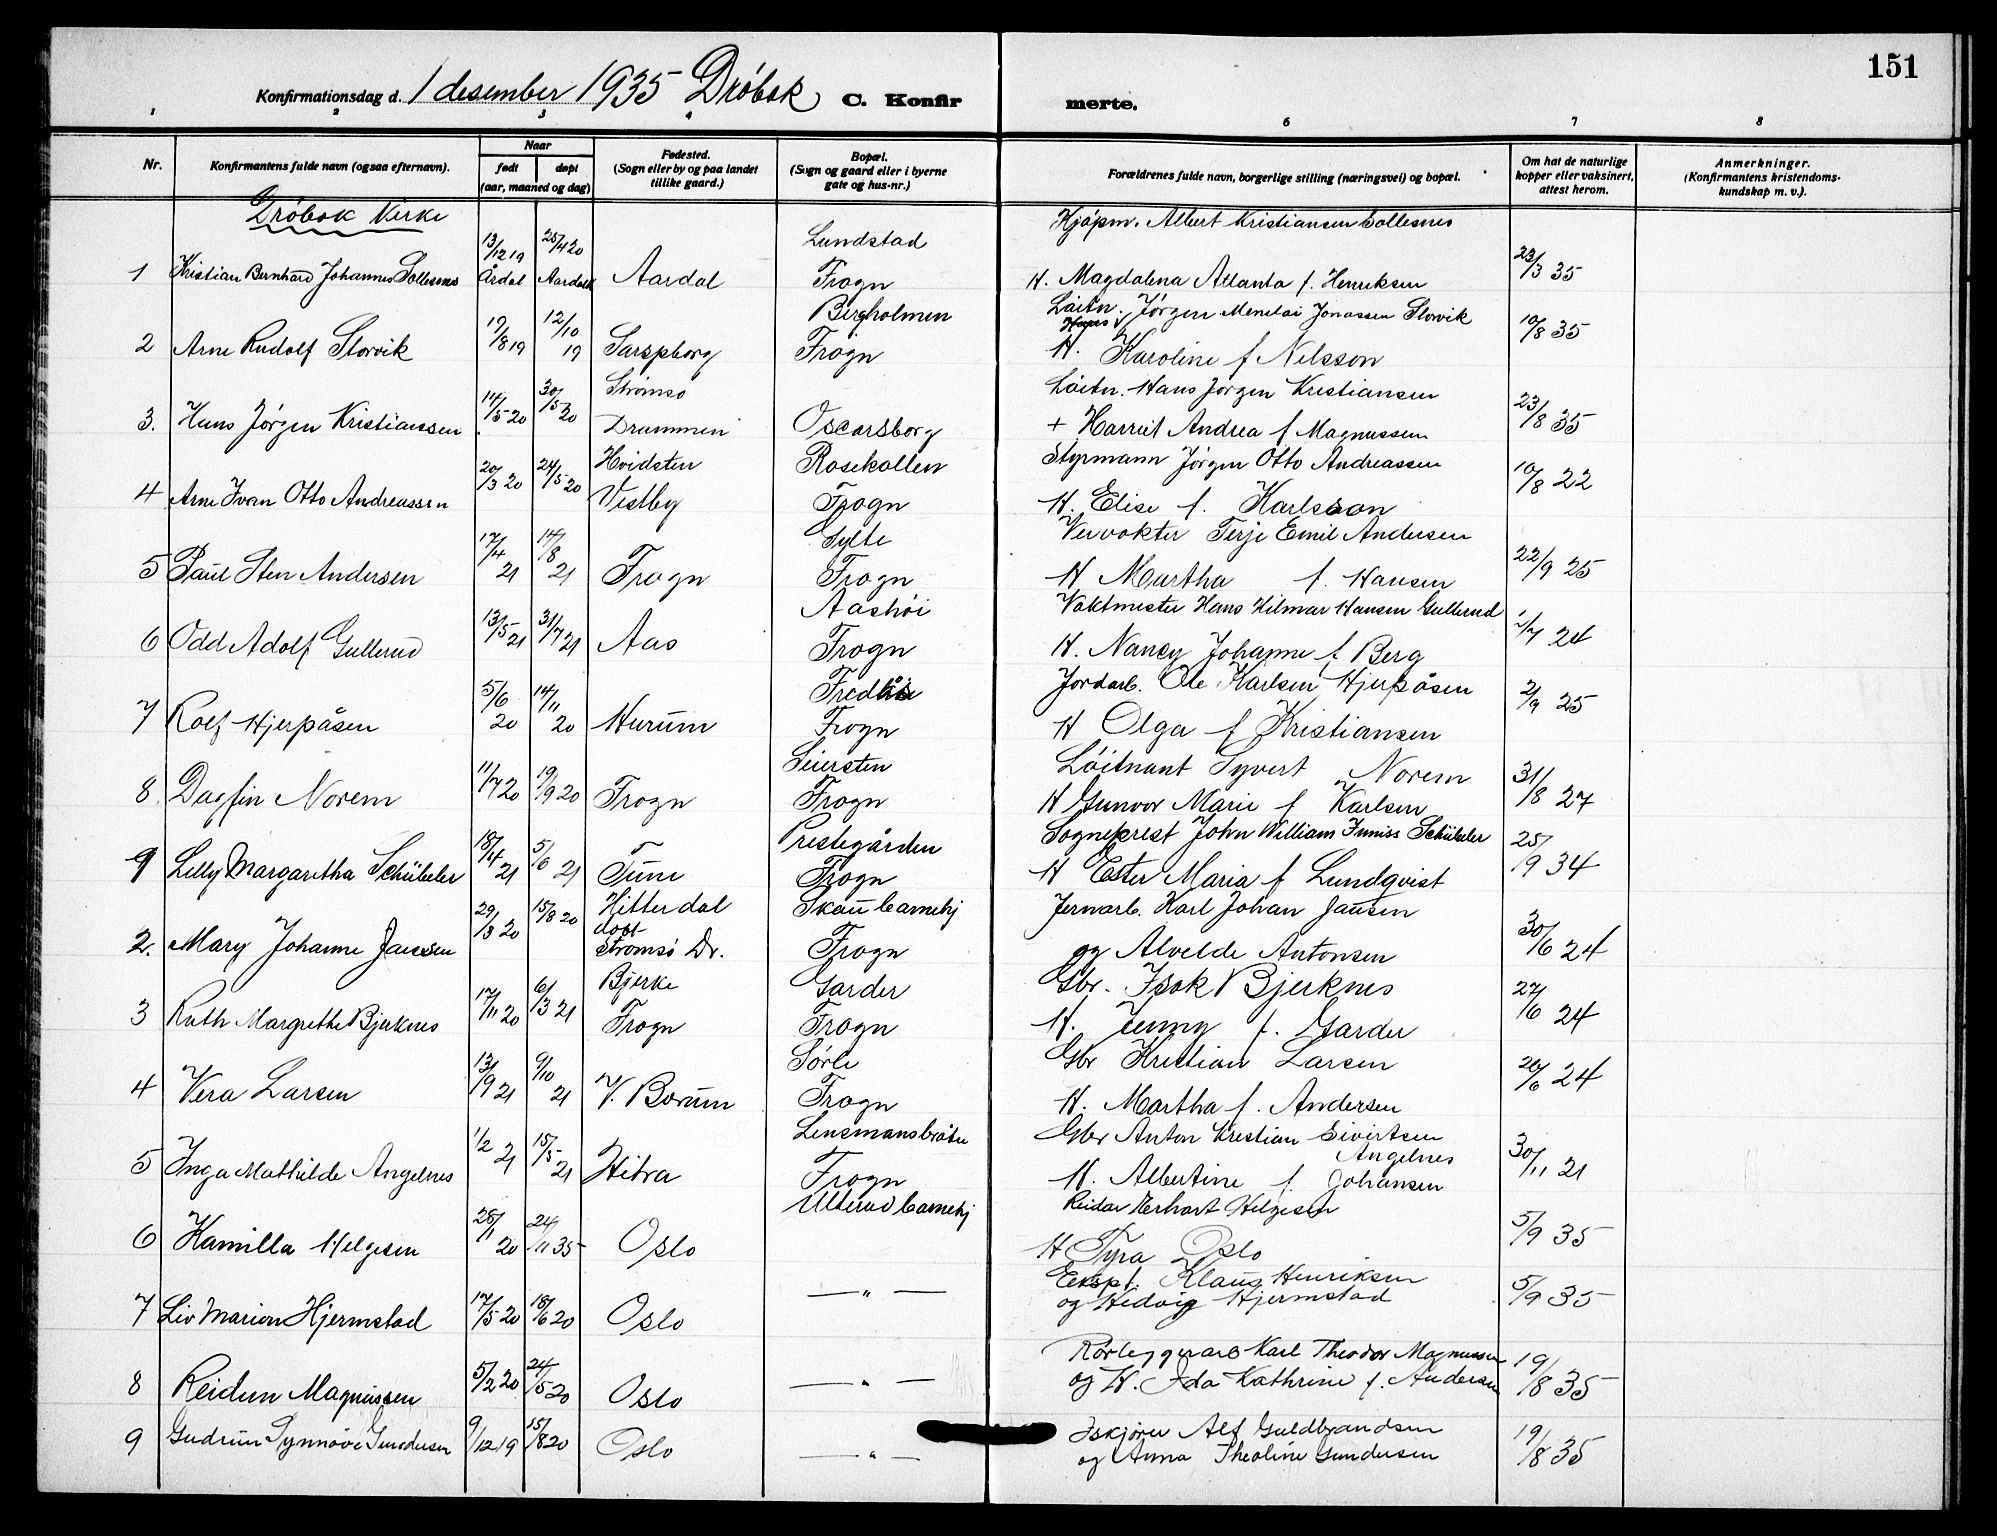 151
Konfirmationsdag d. 1 desember 1935 Drøbak C. Konfirmerte.
1 2 3 4 6 7 8
Nr. Konfirmantens fulde navn (ogsaa efternavn). Naar født døpt (aar, maaned og dag) Fødested. (Sogn eller by og paa landet tillike gaard.) Bopæl. (Sogn og gaard eller i byerne gate og hus-nr.) Forældrenes fulde navn, borgerlige stilling (næringsvei) og bopæl. Om hat de naturlige kopper eller vaksinert, attest herom. Anmerkninger. (Konfirmantens kristendomskundskap m. v.).
Drøbak Kirke
13/12 19 25/4 20 Lundstad Kjøpm. Albert Kristiansen Sollesnes
1 Kristian Bernhard Johannes Sollesnes Årdal Aardal Aardal Frogn H. Magdalena Atlanta f. Henriksen 23/3 35
Bergholmen Løitn. Jørgen Menelai Jonassen Storvik
2 Arne Rudolf Storvik 19/8 19 12/10 19 Sarpsborg Frogn H. Karoline f Nilsson 10/8 35
Strømsø Løitn. Hans Jørgen Kristiansen
3. Hans Jørgen Kristianssen 14/5 20 30/5 20 Drammen Oscarsborg + Harriet Andrea f Magnussen 23/8 35
Hvidsten Rosekollen Styrmann Jørgen Otto Andreassen
4 Arne Ivan Otto Andreassen 20/3 20 24/5 20 Vestby Frogn H. Elise f. Karlsson 10/8 22
Sylte Vervokter Terje Emil Andersen
5 Paul Sten Andersen 17/4 21 14/8 21 Frogn Frogn H Martha f. Hansen 22/9 25
Aashøi Vaktmester Hans Hilmar Hansen Gullerud
6 Odd Adolf Gullerud 13/5 21 31/7 21 Aas Frogn H. Nancy Johanne f Berg 1/7 24
Jordarb. Ole Karlsen Hjerpåsen
7 Rolf Hjerpåsen 5/6 20 14/11 20 Hurum Frogn H Olga f Kristiansen 2/9 25
Seiersten Løitnant Syvert Norem
8. Dagfin Norem 11/7 20 19/9 20 Frogn Frogn H Gunvor Marie f Karlsen 31/8 27
Prestegården Sogneprest John William Schübeler
1 Lilly Margaretha Schübeler 18/4 21 5/6 21 Tune Frogn H Ester Maria f Lundqvist 25/9 34
Hitterdal Skau barnehj Jernarb. Karl Johan Jansen
2. Mary Johanne Janssen 29/3 20 15/8 20 døbt Strømsø Dr. Frogn og Alvelde Antonsen 30/6 24
Bjerke Garder Gbr. Isak Bjerknes
3 Ruth Margrethe Bjerknes 17/11 20 6/3 21 Frogn Frogn H. Jenny f. Garder 27/6 24
Sørli Gbr Kristian Larsen
4 Vera Larsen 13/9 21 9/10 21 V. Borum Frogn H. Martha f. Andersen 20/6 24
Lensmansbråten Gbr Anton Kristian Sivertsen Angelnes
5 Inga Mathilde Angelnes 1/2 21 15/5 21 Hitra Frogn H. Albertine f. Johansen 30/11 21
Ullerud barnehj Reidar Erhart Helgesen
6 Kamilla Helgesen 28/1 20 24/11 35 Oslo H Tyra Oslo 5/9 35
Eksp f. Klaus Henriksen
7 Liv Marion Hjermstad 17/5 20 18/6 20 Oslo — " — og Hedvig Hjermstad 5/9 35
Rørleggerarb Karl Theodor Magnussen
8 Reidun Magnussen 5/2 20 24/5 20 Oslo — " — og H. Ida Kathrine f. Andersen 19/8 35
Iskjører Alf Guldbrandsen
9 Gudrun Synnøve Gundersen 9/12 19 15/8 20 Oslo — " — og Anna Theoline Gundersen 19/8 35